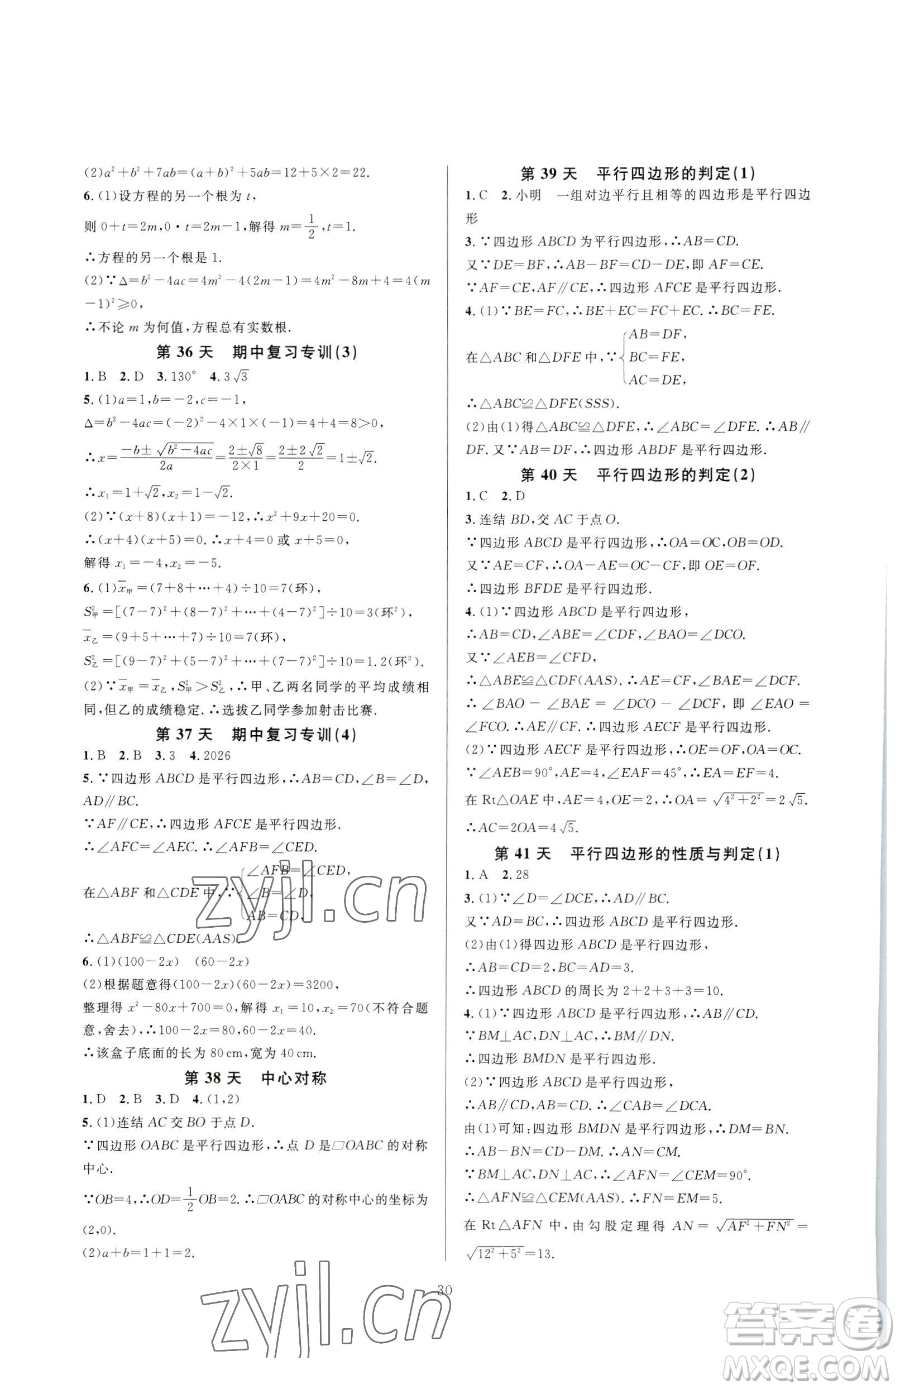 (2)a²+b²+7ab=(a+b)²+5ab=12+5×2=22.
6.(1)设方程的另一个根为t，
则0+t=2m，0·t=2m-1，解得m=1/2，t=1.
∴方程的另一个根是1.
(2)∵Δ=b²-4ac=4m²-4(2m-1)=4m²-8m+4=4(m
-1)²≥0，
∴不论m为何值，方程总有实数根.
第36天 期中复习专训(3)
1.B 2.D 3.130° 4.3√3
5.(1)a=1，b=-2，c=-1，
Δ=b²-4ac=(-2)²-4×1×(-1)=8>0，
∴x=(-b±√(b²-4ac))/2a=(2±√8)/(2×1)=(2±2√2)/2=1±√2.
∴x₁=1+√2，x₂=1-√2.
(2)∵(x+8)(x+1)=-12，∴x²+9x+20=0.
∴(x+4)(x+5)=0.∴x+4=0或x+5=0.
解得x₁=-4，x₂=-5.
6.(1)x̄甲=(7+8+…+4)÷10=7(环)，
S²甲=[(7-7)²+(8-7)²+…+(4-7)²]÷10=3(环²)，
x̄乙=(9+5+…+7)÷10=7(环)，
S²乙=[(9-7)²+(5-7)²+…+(7-7)²]÷10=1.2(环²).
(2)∵x̄甲=x̄乙，S²甲>S²乙，∴甲、乙两名同学的平均成绩相
同，但乙的成绩稳定.∴选拔乙同学参加射击比赛.
第37天 期中复习专训(4)
1.B 2.B 3.3 4.2026
5.∵四边形ABCD是平行四边形，∴AB=CD，∠B=∠D，
AD∥BC.
∵AF∥CE，∴四边形AFCE是平行四边形.
∴∠AFC=∠AEC.∴∠AFB=∠CED.
在△ABF和△CDE中，∵{∠AFB=∠CED，
AB=CD，
∴△ABF≌△CDE(AAS).
6.(1)(100-2x) (60-2x)
(2)根据题意得(100-2x)(60-2x)=3200，
整理得x²-80x+700=0，解得x₁=10，x₂=70(不符合题
意，舍去)，∴100-2x=80，60-2x=40.
∴该盒子底面的长为80cm，宽为40cm.
第38天 中心对称
1.D 2.B 3.D 4.(1,2)
5.(1)连结AC交BO于点D.
∵四边形OABC是平行四边形，∴点D是□OABC的对称
中心.
∵OB=4，∴OD=1/2OB=2.∴□OABC的对称中心的坐标为
(2,0).
(2)a+b=1+1=2.
第39天 平行四边形的判定(1)
1.C 2.小明 一组对边平行且相等的四边形是平行四边
形
3.∵四边形ABCD为平行四边形，∴AB=CD.
又∵DE=BF，∴AB-BF=CD-DE，即AF=CE.
∵AF=CE，AF∥CE，∴四边形AFCE是平行四边形.
4.(1)∵BE=FC，∴BE+EC=FC+EC.∴BC=FE.
在△ABC和△DFE中，∵{AB=DF，
BC=FE，
AC=DE，
∴△ABC≌△DFE(SSS).
(2)由(1)得△ABC≌△DFE，∴∠ABC=∠DFE，∴AB∥
DF.又∵AB=DF，∴四边形ABDF是平行四边形.
第40天 平行四边形的判定(2)
1.C 2.D
3.连结BD，交AC于点O.
∵四边形ABCD是平行四边形，∴OA=OC，OB=OD.
又∵AE=CF，∴OA-AE=OC-CF，即OE=OF.
∴四边形BFDE是平行四边形.
4.(1)∵四边形ABCD是平行四边形，
∴AB=CD，∠ABE=∠CDF，∠BAO=∠DCO.
又∵∠AEB=∠CFD，
∴△ABE≌△CDF(AAS).∴AE=CF，∠BAE=∠DCF.
∴∠BAO-∠BAE=∠DCO-∠DCF，即∠EAO=
∠FCO.∴AE∥CF.∴四边形AECF是平行四边形.
(2)∵四边形AECF是平行四边形，∴OE=OF=2.
∵∠AEB=90°，AE=4，∠EAF=45°，∴∠AEF=90°.
在Rt△OAE中，AE=4，OE=2，∴OA=√(4²+2²)=2√5.
∴AC=2OA=4√5.
第41天 平行四边形的性质与判定(1)
1.A 2.28
3.(1)∵∠D=∠DCE，∴AD∥BC.
又∵AD=BC，∴四边形ABCD是平行四边形.
(2)由(1)得四边形ABCD是平行四边形，
∴AB=CD=2，BC=AD=3.
∴四边形ABCD的周长为2+2+3+3=10.
4.(1)∵四边形ABCD是平行四边形，∴CD∥AB.
∵BM⊥AC，DN⊥AC，∴BM∥DN.
∴四边形BMDN是平行四边形.
(2)∵四边形ABCD是平行四边形，
∴AB=CD，AB∥CD.∴∠CAB=∠DCA.
由(1)可知：四边形BMDN是平行四边形，∴DM=BN.
∴CM=AN.
∵BM⊥AC，DN⊥AC，∴∠AFN=∠CEM=90°.
∴△AFN≌△CEM(AAS).∴FN=EM=5.
在Rt△AFN中，由勾股定理得AN=√(AF²+FN²)=
√(12²+5²)=13.
30
zyjl.cn
zyjl.cn
答案卷
MXQE.COM